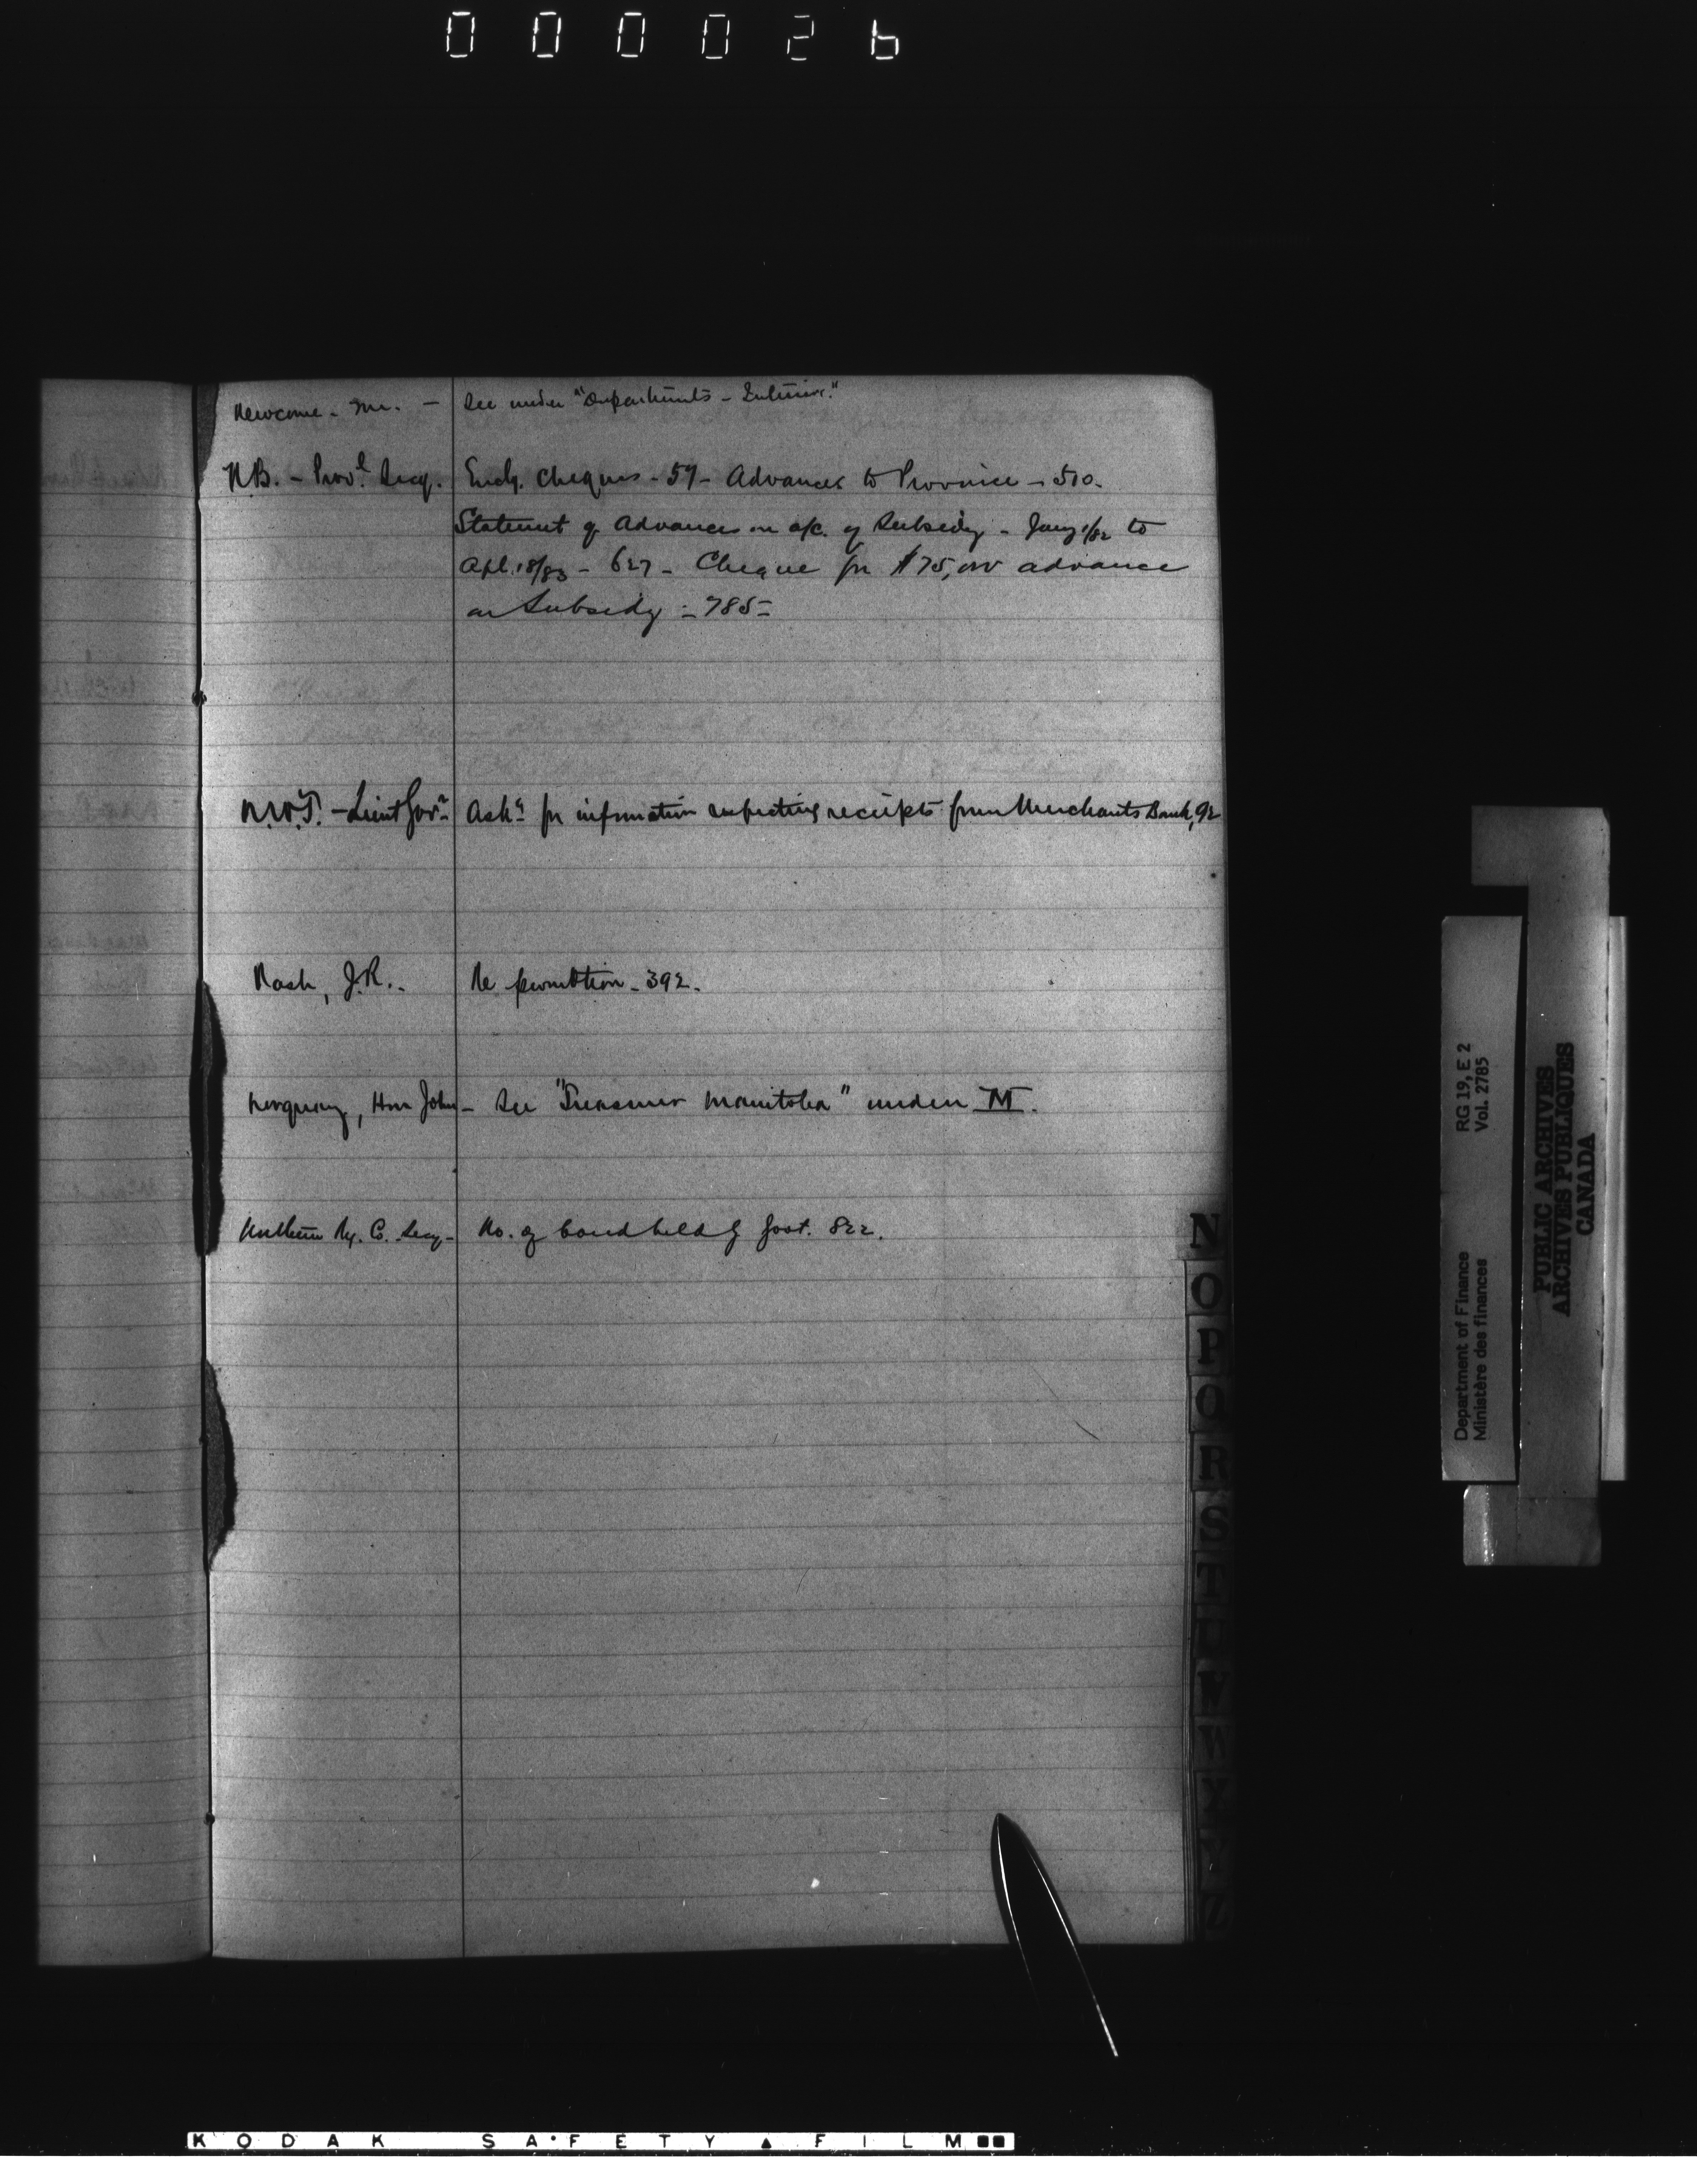 000026
Newcome - Mr. - See under "Departments - Interior."
N.B. - Prov'l Secy. Encg. cheques - 57 - Advances to Province - 510.
Statement of Advances on a/c. of Subsidy - Jany 1/82 to
Apl. 18/83 - 627 - Cheque for $75,000 advance
on Subsidy - 785 -
N.W.T. - Lieut Govr. Askg for information respecting receipts from Merchants Bank, 92
Nash, J.R. - Re promotion - 392.
Norquay, Hon John - See "Treasurer Manitoba" under M.
Northern Ry. Co. Secy - No. of bond held by Govt. 822.
N
O
P
Q
R
S
T
U
V
W
X
Y
Z
RG 19, E 2
Vol. 2785
Department of Finance
Ministère des finances
PUBLIC ARCHIVES
ARCHIVES PUBLIQUES
CANADA
KODAK SAFETY FILM